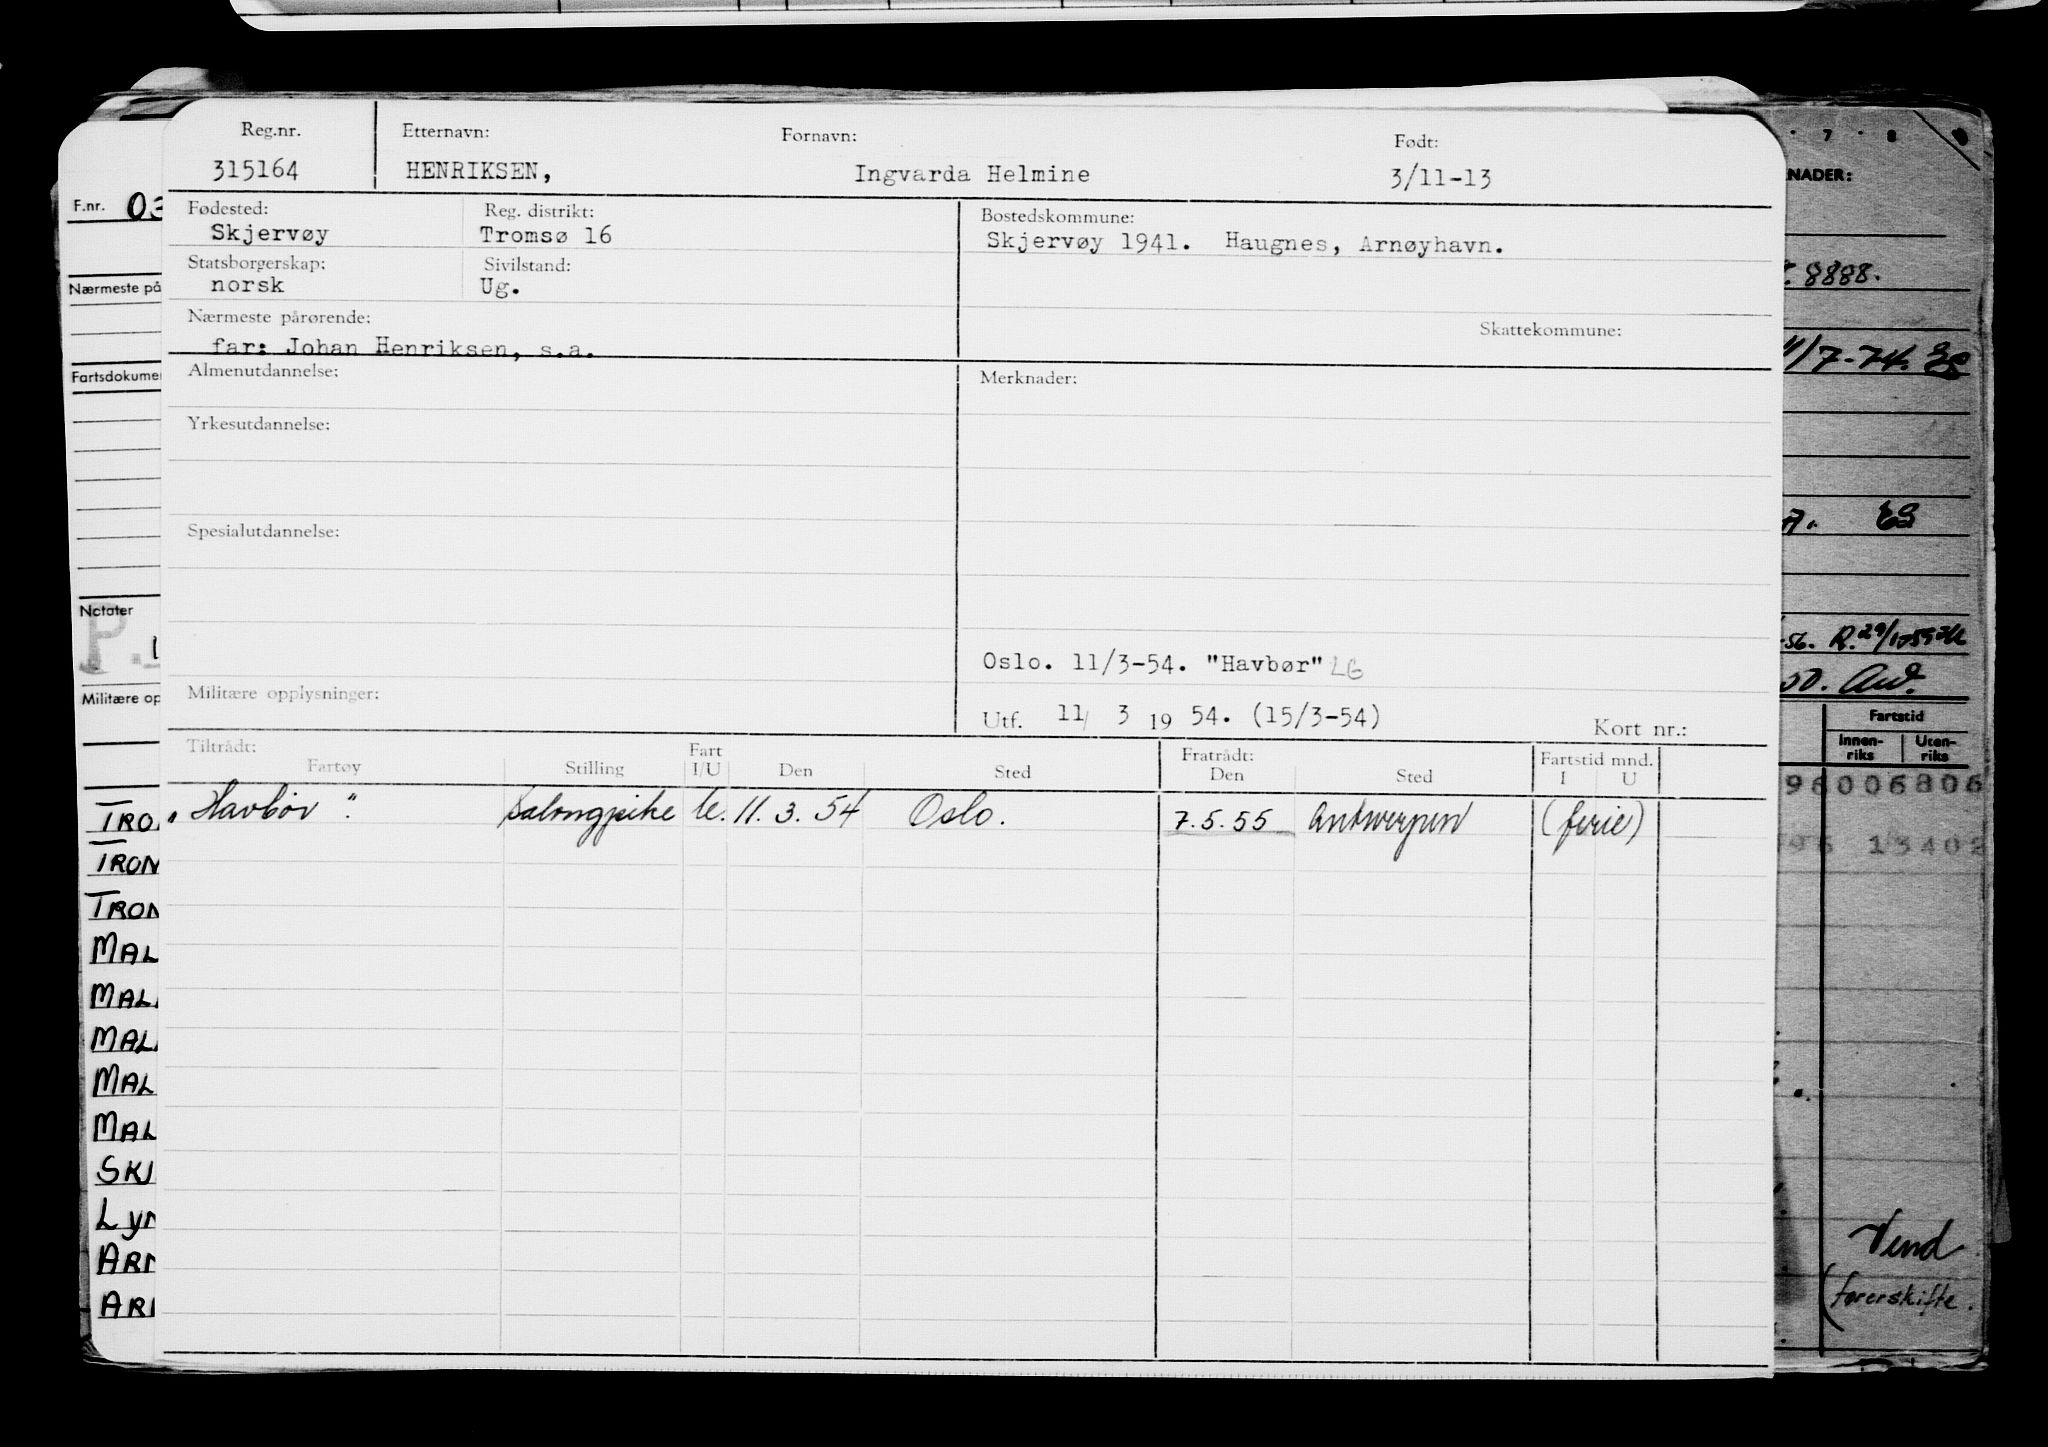 Reg.nr. Etternavn: Fornavn: Født:
315164 HENRIKSEN, Ingvarda Helmine 3/11-13
Fødested: Reg. distrikt: Bostedskommune:
Skjervøy Tromsø 16 Skjervøy 1941. Haugnes, Arnøyhavn.
Statsborgerskap: Sivilstand:
norsk Ug.
Nærmeste pårørende: Skattekommune:
far: Johan Henriksen, s.a.
Almenutdannelse: Merknader:
Yrkesutdannelse:
Spesialutdannelse:
Oslo. 11/3-54. "Havbør" LG
Militære opplysninger:
Utf. 11/ 3 19 54. (15/3-54) Kort nr.:
Tiltrådt: Fart Fratrådt: Fartstid mnd.
Fartøy Stilling I/U Den Sted Den Sted I U
"Havbør" Salongpike U. 11.3.54 Oslo. 7.5.55 Antwerpen (ferie)
F.nr. 03
Nærmeste på
Fartsdokumen
Notater
P.
Militære op
TRO
TRON
TRON
MAL
MAL
MAL
MAL
MAL
SKJ
Lyn
ARN
ARN
7 8 9
NADER:
8888.
11/7-74.
-56. R.
Fartstid
Innen-riks Uten-riks
96006806
13402
Vend
(førerskifte.